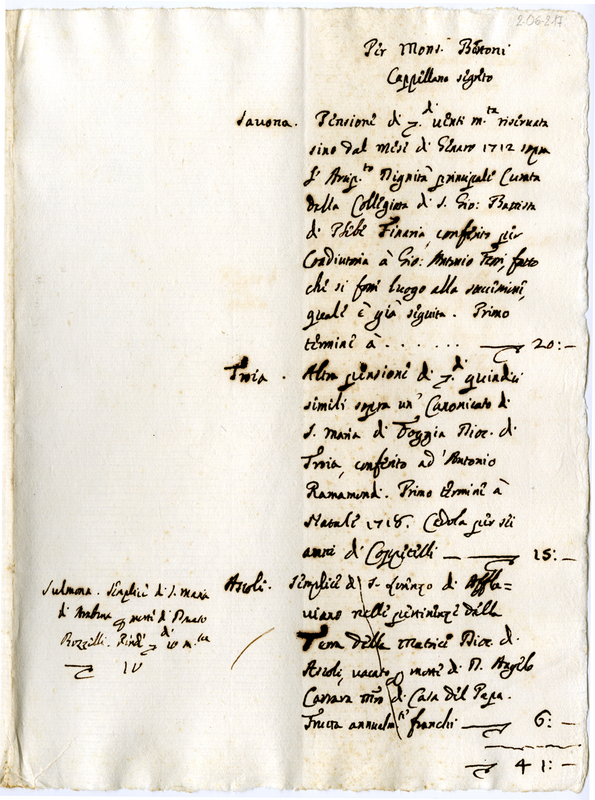 2-06-217
Per Mons.r Bottoni
Cappellano segreto
Savona. Pensione di ▽.di venti m.ta riservata
sino dal mese di Genaro 1712 sopra
l' Arcip.to Dignità principale Curata
della Collegiata di S. Gio: Battista
di Plebe Finaria, conferito per
Coadiutoria à Gio: Antonio, fatto
che si forse luogo alla successione,
quale è già seguita. Primo
termine à . . . . . . ▽ 20:—
Troia. Altra pensione di ▽.di quindici
simili sopra un' Canonicato di
S. Maria di Foggia Dioc. di
Troia, conferito ad' Antonio
Ramamondi. Primo termine à
Natale 1718. Cedola per sei
anni di Coppitelli — ▽ 15:—
Ascoli. Semplice di S. Lorenzo di Affla=
viano nelle pertinenze della
Terra della Matrice Dioc. di
Ascoli, vacato per morte di D. Angelo
Carrara m̃ro di Casa del Papa.
Frutta annualm.te franchi — ▽ 6:—
▽ 41:—
Sulmona. Semplice di S. Maria
di per morte di Donato
Rozzilli. Rende ▽.di 10 m.ta
▽ 10